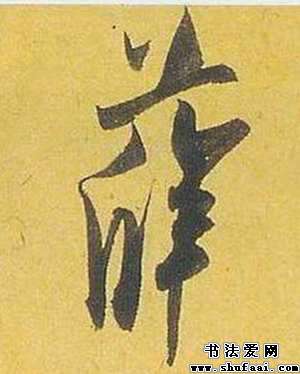 薛
书法爱网
www.shufaai.com